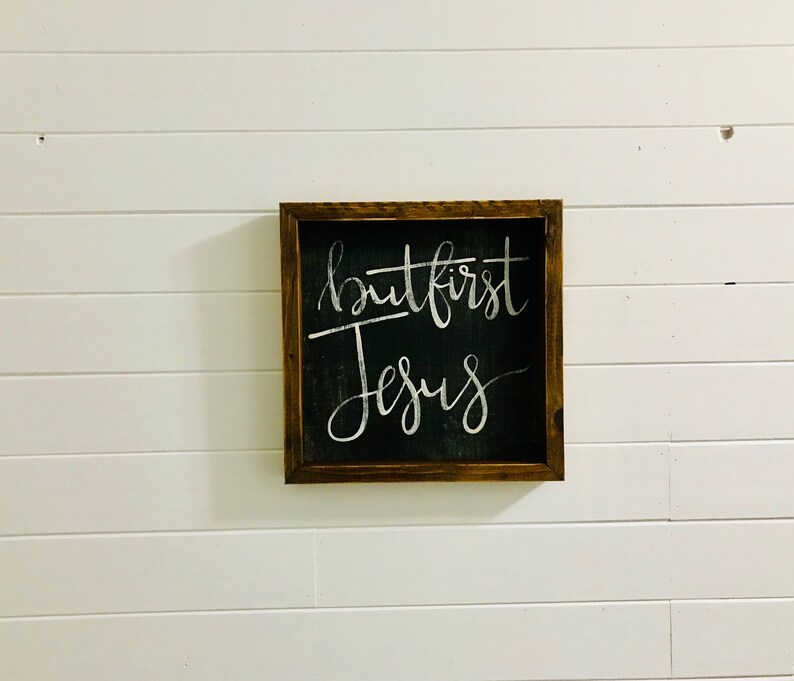 but first
Jesus